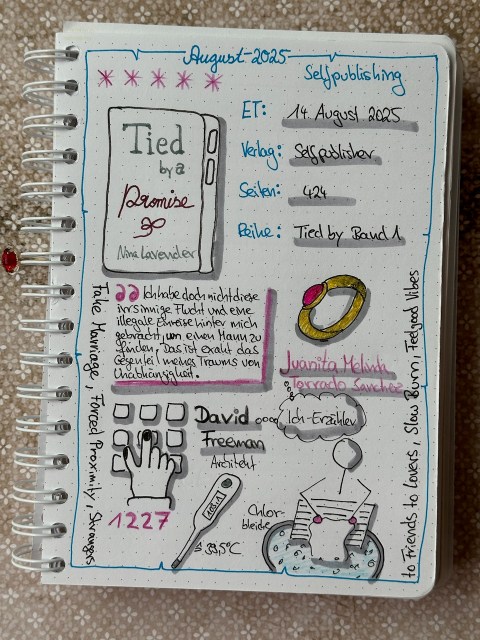 August-2025
Selfpublishing
ET: 14. August 2025
Verlag: Selfpublisher
Seiten: 424
Reihe: Tied by Band 1
Tied
by a
Promise
Nina Lavender
Ich habe doch nicht diese
irrsinnige Flucht und eine
illegale Einreise hinter mich
gebracht, um einen Mann zu
finden. Das ist exakt das
Gegenteil meines Traums von
Unabhängigkeit.
Juanita Melinda
Torrado Sanchez
Ich-Erzähler
David
Freeman
Architekt
1227
39,5°C
Chlor-
bleiche
Fake Marriage, Forced Proximity, Strangers
to Friends to Lovers, Slow Burn, Feelgood Vibes